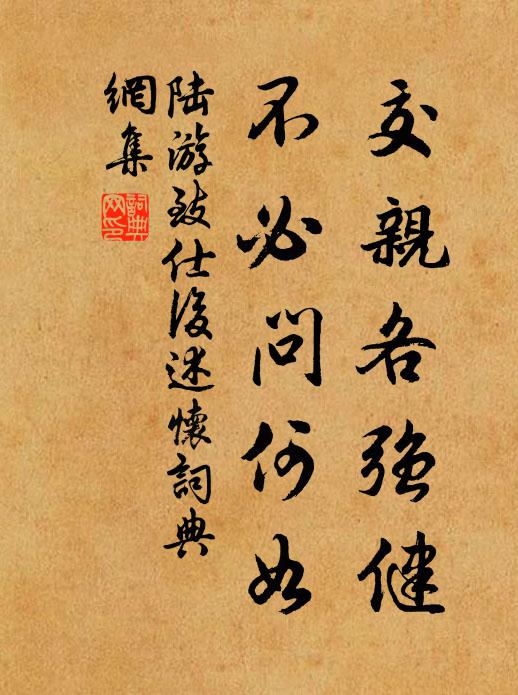 交親各強健
不必問何如
陸游致仕後述懷詞典
網集
詞典網印